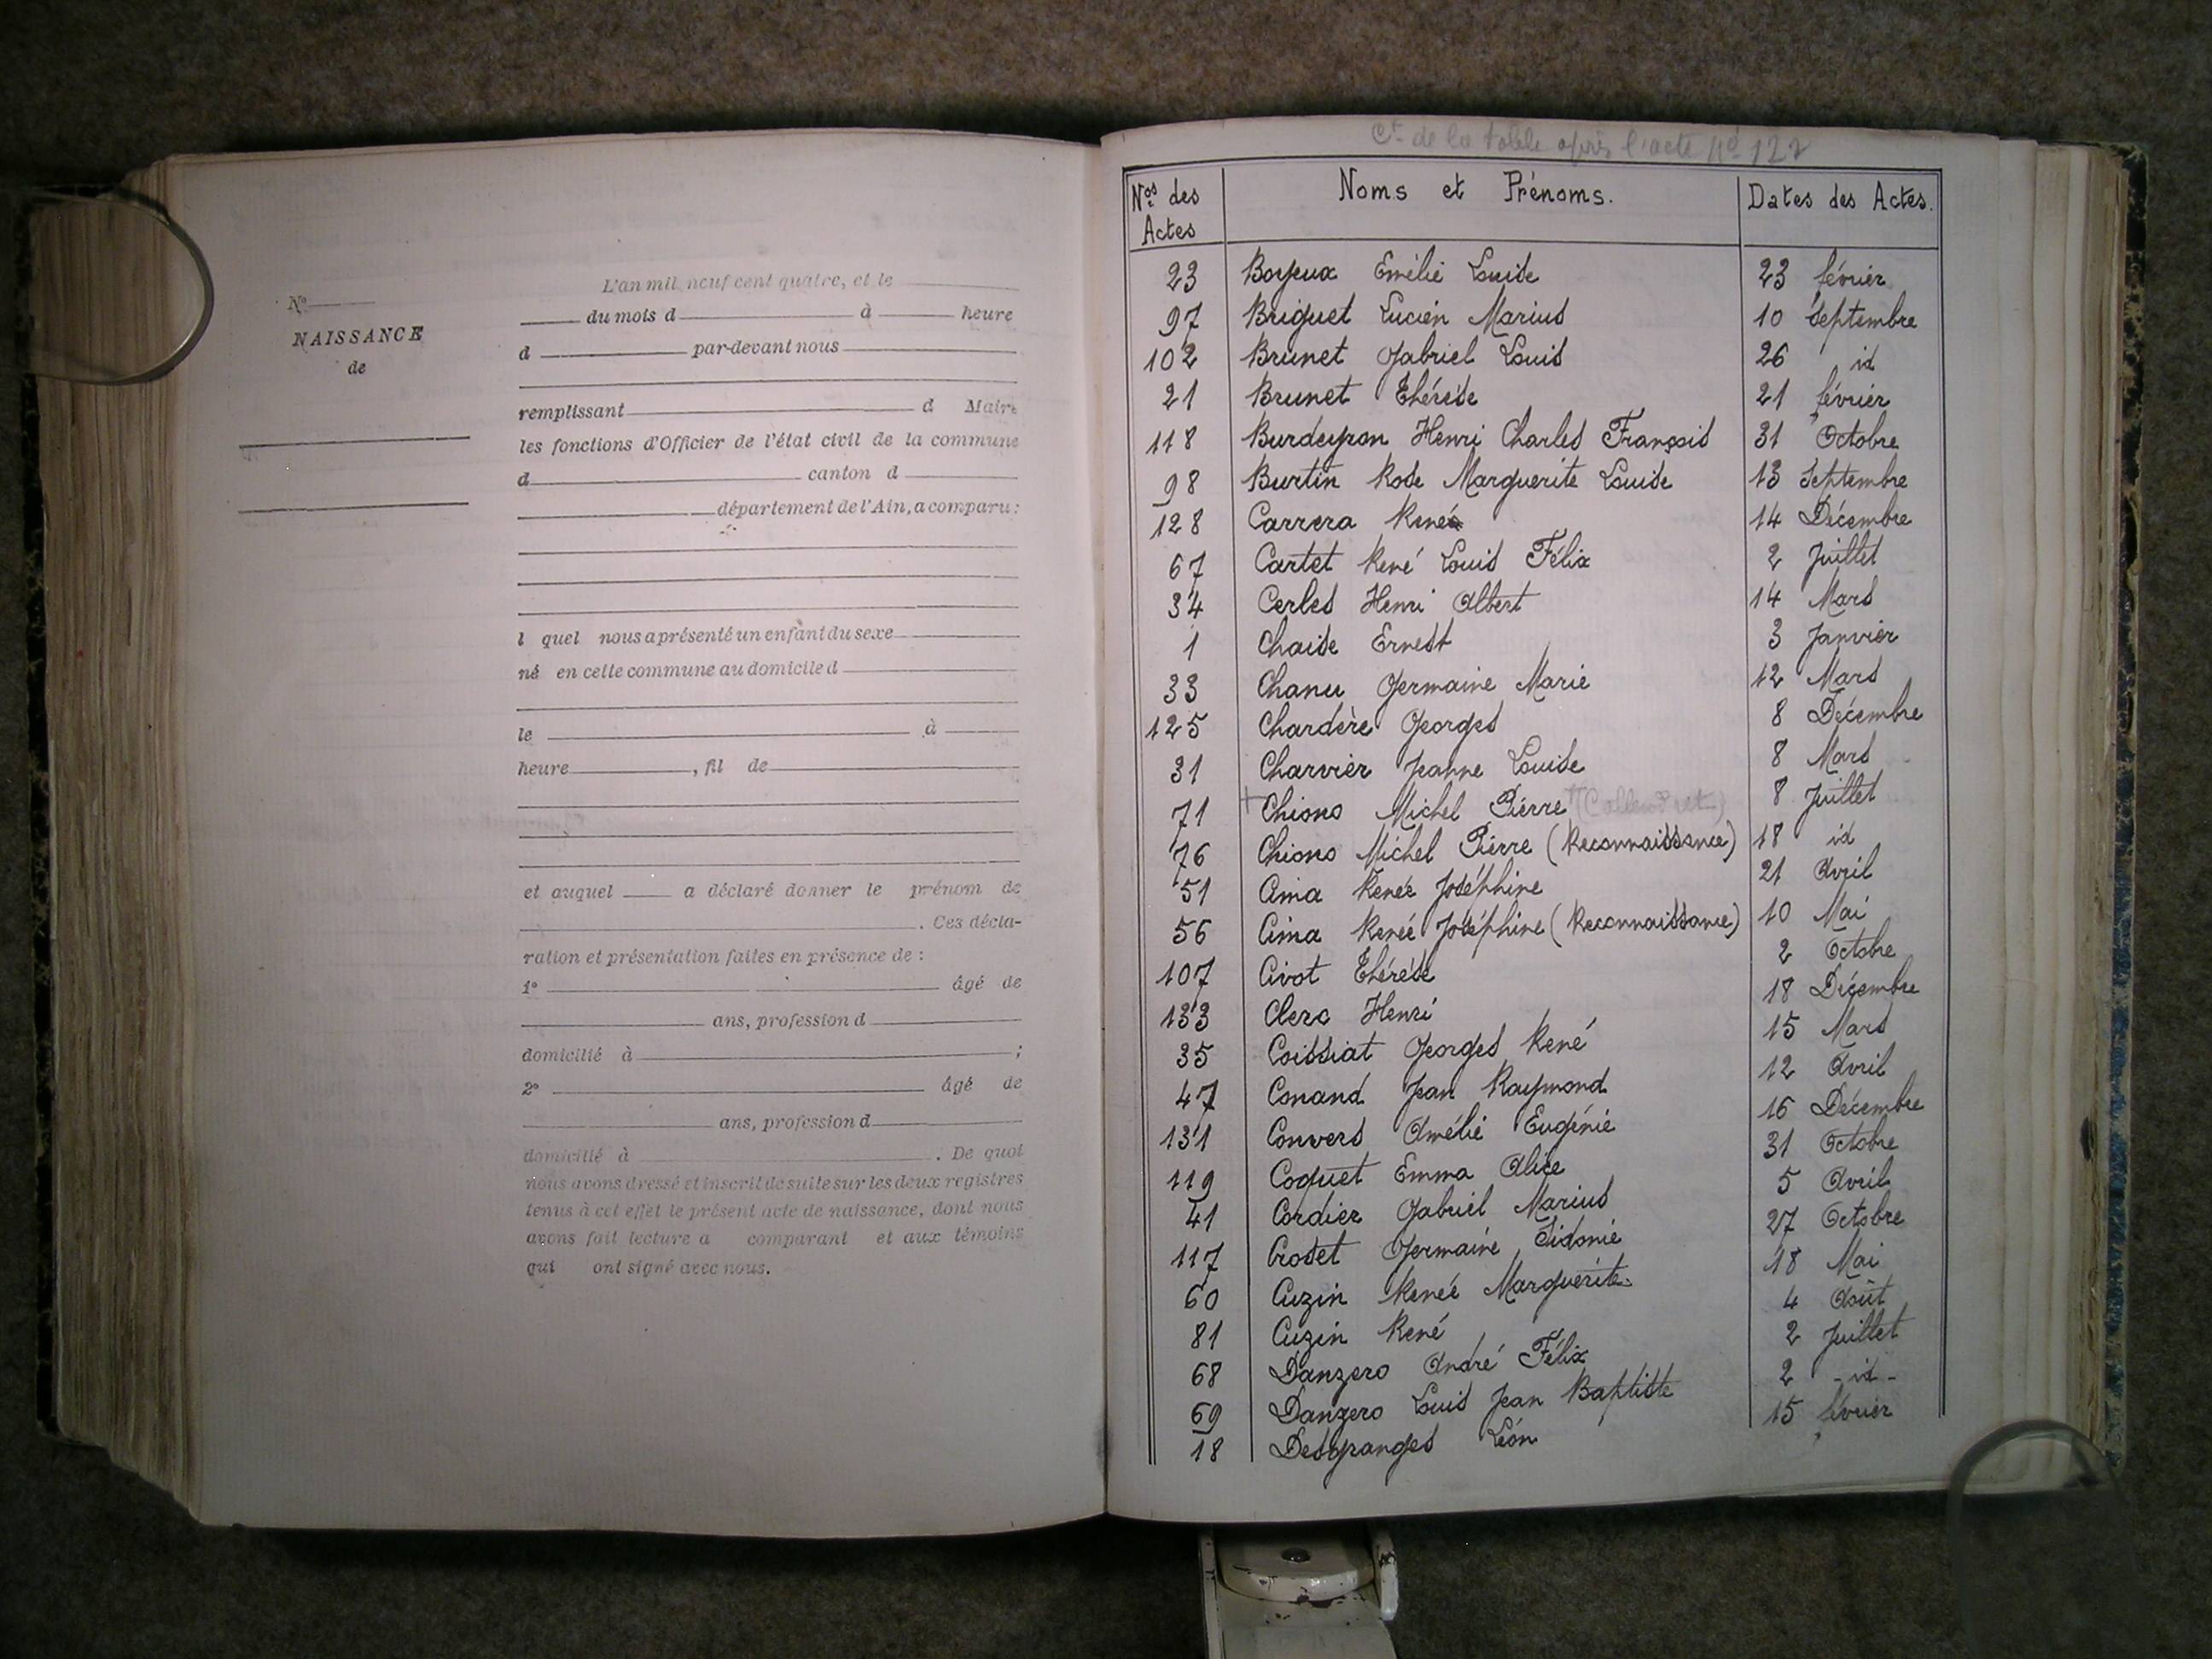 N°
NAISSANCE
de
L'an mil neuf cent quatre, et le
du mois d à heure
d par-devant nous
remplissant d Maire
les fonctions d'Officier de l'état civil de la commune
d canton d
département de l'Ain, a comparu :
l quel nous a présenté un enfant du sexe
né en cette commune au domicile d
le à
heure , fil de
et auquel a déclaré donner le prénom de
. Ces décla-
ration et présentation faites en présence de :
1° âgé de
ans, profession d
domicilié à ;
2° âgé de
ans, profession d
domicilié à . De quoi
nous avons dressé et inscrit de suite sur les deux registres
tenus à cet effet le présent acte de naissance, dont nous
avons fait lecture a comparant et aux témoins
qui ont signé avec nous.
Ct de la table après l'acte No 122
Nos des Actes Noms et Prénoms. Dates des Actes.
23 Boyeux Emélie Louise 23 février
97 Briquet Lucien Marius 10 Septembre
102 Brunet Gabriel Louis 26 id
21 Brunet Thérèse 21 février
118 Burdeyron Henri Charles François 31 Octobre
98 Burtin Rose Marguerite Louise 13 Septembre
128 Carrera René 14 Décembre
67 Cartet René Louis Félix 2 Juillet
34 Cerles Henri Albert 14 Mars
1 Chaise Ernest 3 Janvier
33 Chanu Germaine Marie 12 Mars
125 Chardère Georges 8 Décembre
31 Charvier Jeanne Louise 8 Mars
71 + Chiono Michel Pierre 8 Juillet
76 Chiono Michel Pierre (Reconnaissance) 18 id
51 Cima Renée Joséphine 21 Avril
56 Cima Renée Joséphine (Reconnaissance) 10 Mai
107 Civot Thérèse 2 Octobre
133 Clerc Henri 18 Décembre
35 Coissiat Georges René 15 Mars
47 Conand Jean Raymond 12 Avril
131 Convers Amélie Eugénie 16 Décembre
119 Coquet Emma Alice 31 Octobre
41 Cordier Gabriel Marius 5 Avril
117 Croset Germaine Sidonie 27 Octobre
60 Cuzin Renée Marguerite 18 Mai
81 Cuzin René 4 Août
68 Danzero André Félix 2 Juillet
69 Danzero Louis Jean Baptiste 2 - id -
18 Desgranges Léon 15 février